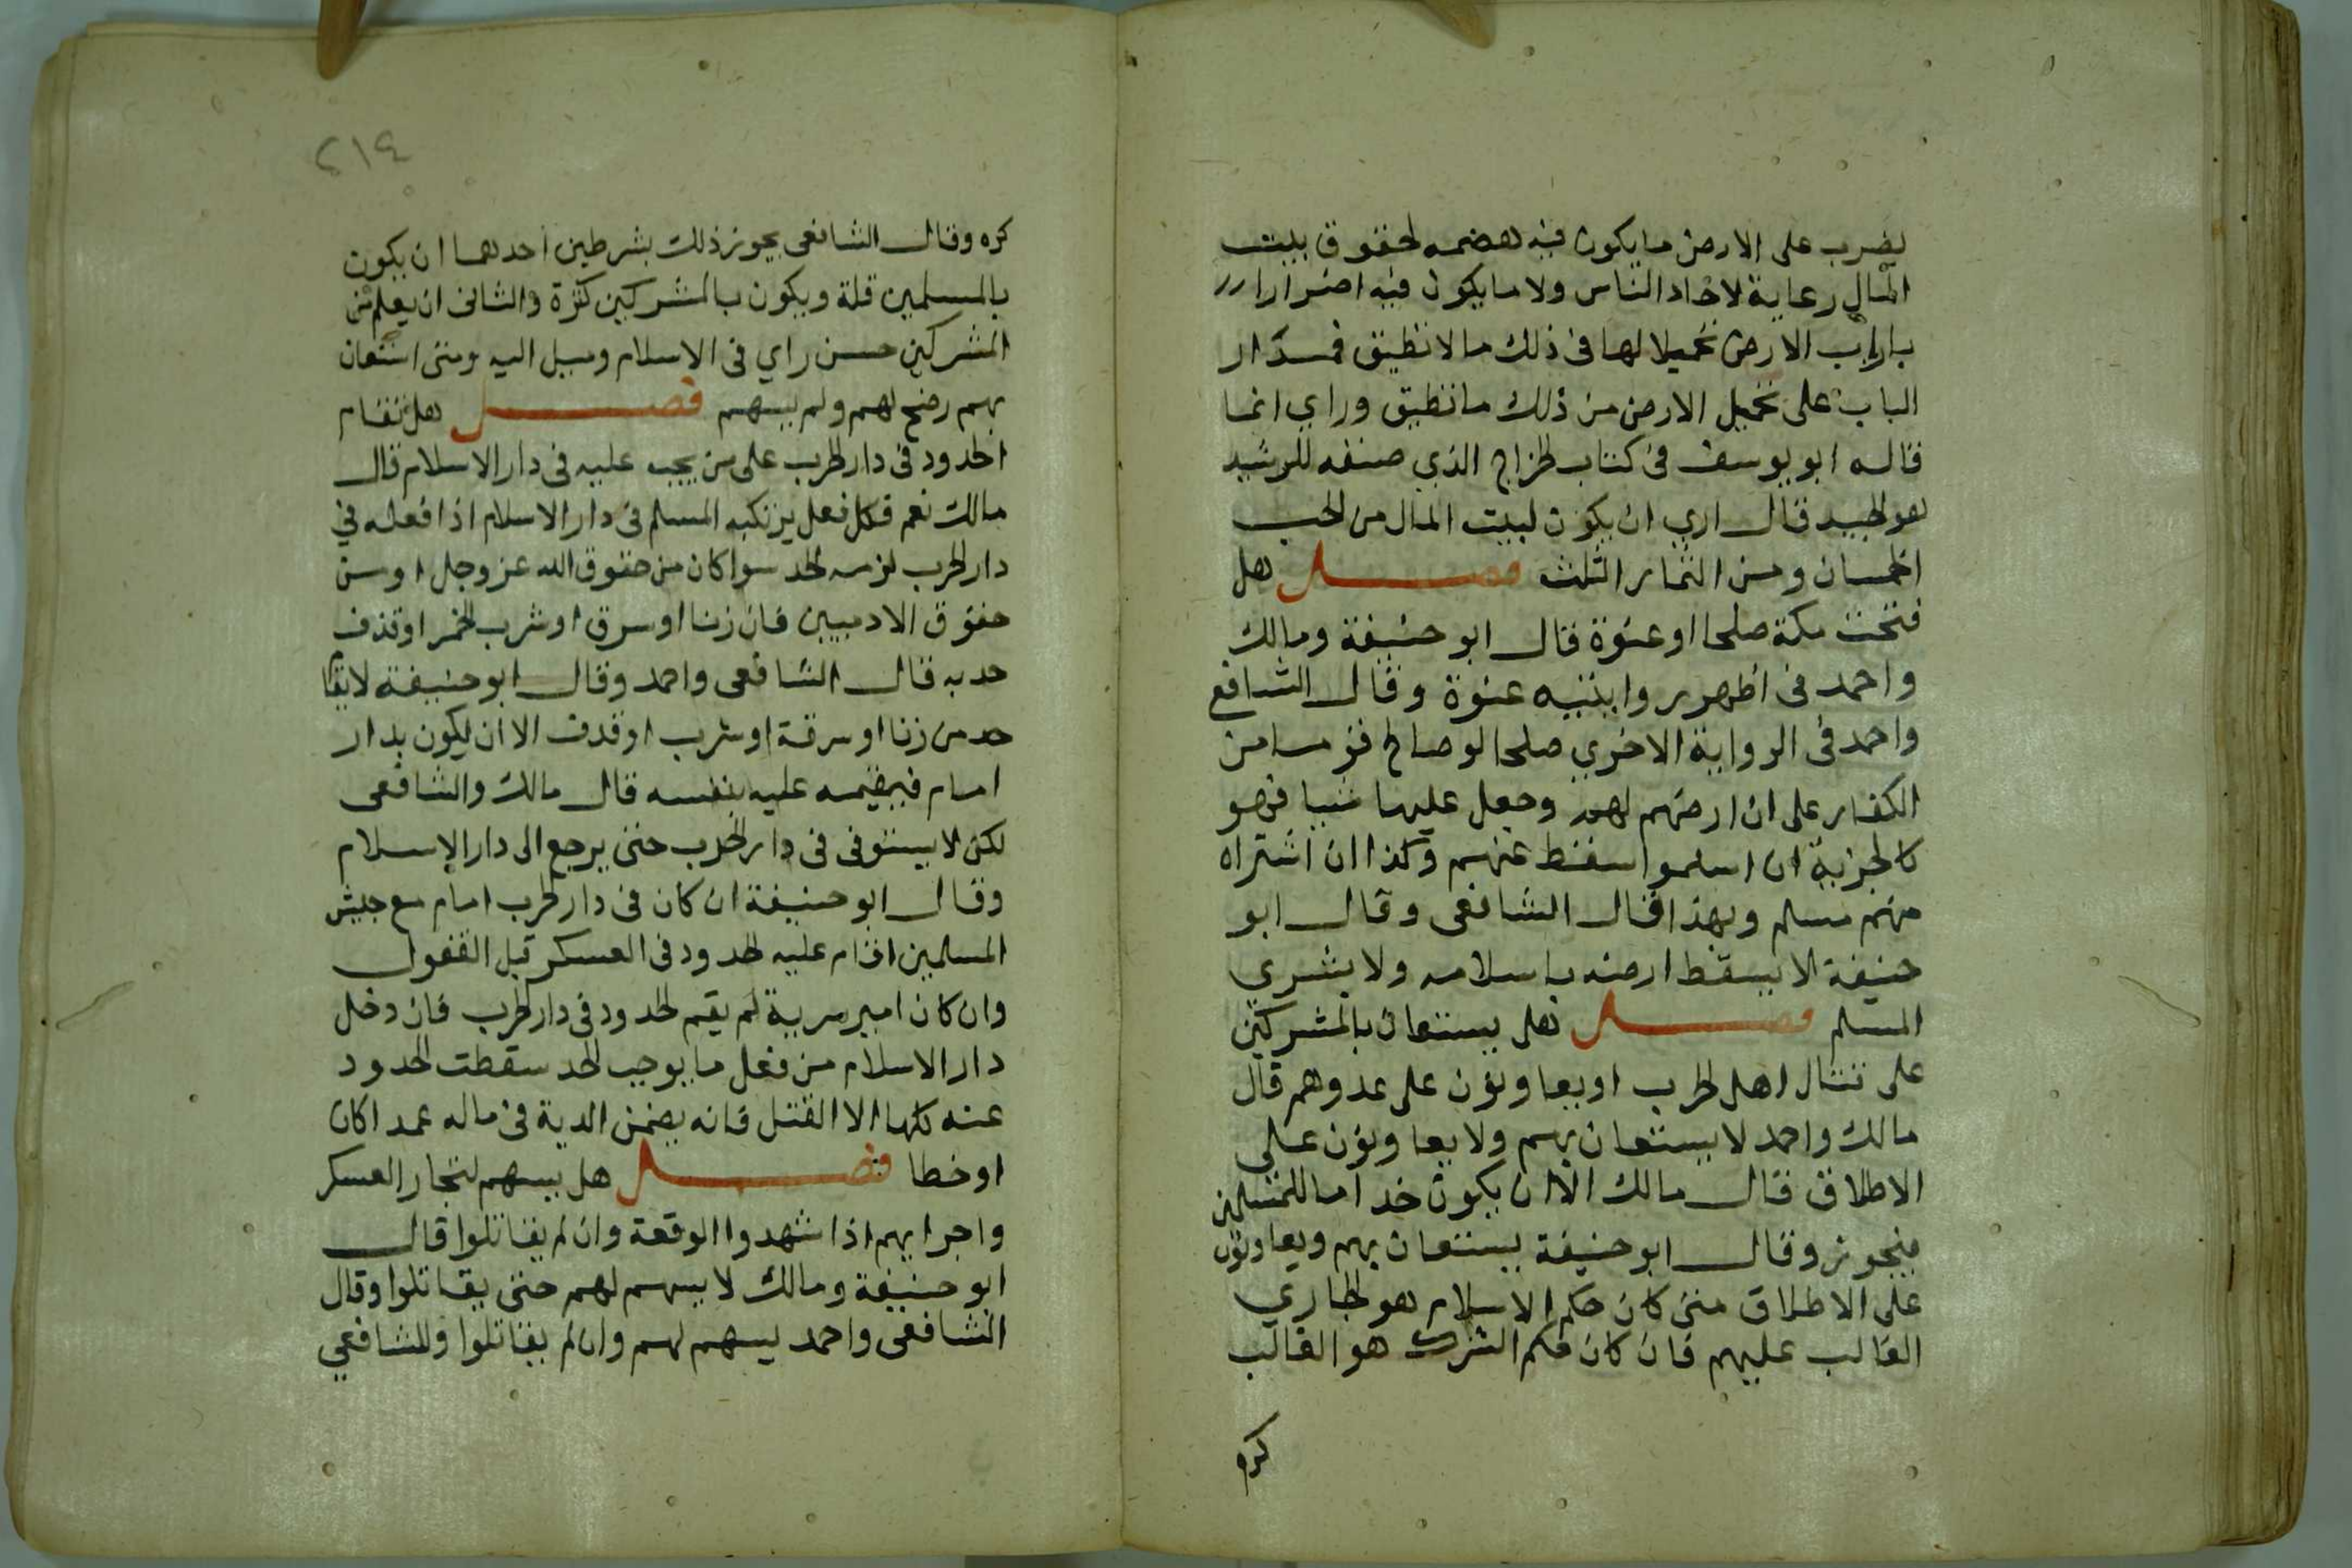 يضرب على الارض ما يكون فيه هضمه لحقوق بيت
المال رعاية لاحاد الناس ولا ما يكون فيه اضرارا
بارباب الارض تحميلا لها فى ذلك مالا تطيق فمدار
الباب على تحميل الارض من ذلك ما تطيق وراي انما
قاله ابو يوسف فى كتاب الخراج الذي صنفه للرشيد
هو الجيد قال اري ان يكون لبيت المال من الحب
الخمسان ومن الثمار الثلث فصل هل
فتحت مكة صلحا او عنوة قال ابو حنيفة ومالك
واحمد فى اظهر روايتيه عنوة وقال الشافع
واحمد فى الرواية الاخري صلحا لو صالح قوما من
الكفار على ان ارضهم لهم وجعل عليها شيا فهو
كالجزية ان اسلموا سقط عنهم وكذا ان اشتراه
منهم مسلم وبهذا قال الشافعى وقال ابو
حنيفة لا يسقط ارضه باسلامه ولا بشري
المسلم فصل هل يستعان بالمشركين
على قتال اهل الحرب او يعاونون على عدوهم قال
مالك واحمد لا يستعان بهم ولا يعاونون على
الاطلاق قال مالك الا ان يكون خداما للمسلمين
فيجوز وقال ابو حنيفة يستعان بهم ويعاونون
على الاطلاق متى كان حكم الاسلام هو الجاري
الغالب عليهم فان كان حكم الشرك هو الغالب
كره
٢١٤
كره وقال الشافعى يجوز ذلك بشرطين احدهما ان يكون
بالمسلمين قلة ويكون بالمشركين كثرة والثانى ان يعلم من
المشركين حسن راي فى الاسلام وميل اليه ومتى استعان
بهم رضخ لهم ولم يسهم فصل هل تقام
الحدود فى دار الحرب على من يجب عليه فى دار الاسلام قال
مالك نعم فكل فعل يرتكبه المسلم فى دار الاسلام اذا فعله في
دار الحرب لزمه الحد سوا كان من حقوق الله عز وجل او من
حقوق الادميين فان زنا او سرق او شرب الخمر او قذف
حد به قال الشافعى واحمد وقال ابو حنيفة لا يقا
حد من زنا او سرقة او شرب او قذف الا ان يكون بدار
امام فيقيمه عليه بنفسه قال مالك والشافعى
لكن لا يستوفى فى دار الحرب حتى يرجع الى دار الاسلام
وقال ابو حنيفة ان كان فى دار الحرب امام مع جيش
المسلمين اقام عليه الحدود فى العسكر قبل القفول
وان كان امير سرية لم يقم الحدود فى دار الحرب فان دخل
دار الاسلام من فعل ما يوجب الحد سقطت الحدود
عنه كلها الا القتل فانه يضمن الدية فى ماله عمدا كان
او خطا فصل هل يسهم لتجار العسكر
واجرايهم اذا شهدوا الوقعة وان لم يقاتلوا قال
ابو حنيفة ومالك لا يسهم لهم حتى يقاتلوا وقال
الشافعى واحمد يسهم لهم وان لم يقاتلوا وللشافعي